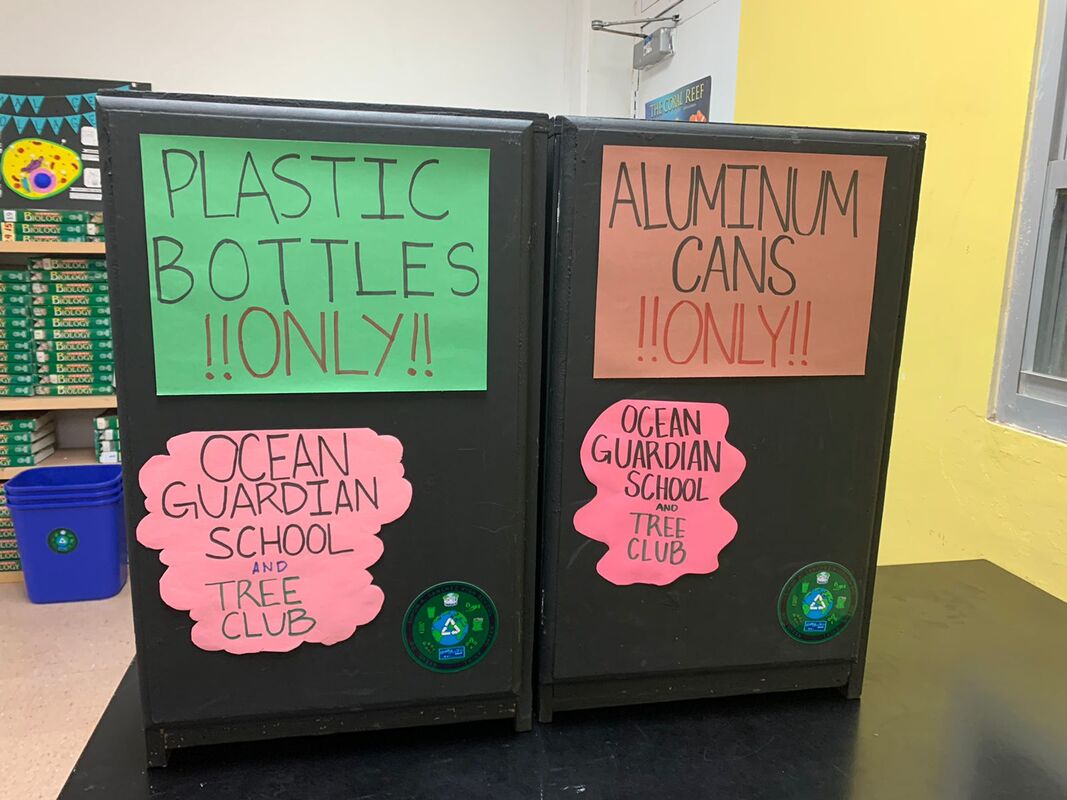 PLASTIC
BOTTLES
!!ONLY!!
OCEAN
GUARDIAN
SCHOOL
AND
TREE
CLUB
ALUMINUM
CANS
!!ONLY!!
OCEAN
GUARDIAN
SCHOOL
AND
TREE
CLUB
THE CORAL REEF
BIOLOGY
BIOLOGY
BIOLOGY
BIOLOGY
BIOLOGY
BIOLOGY
BIOLOGY
BIOLOGY
BIOLOGY
BIOLOGY